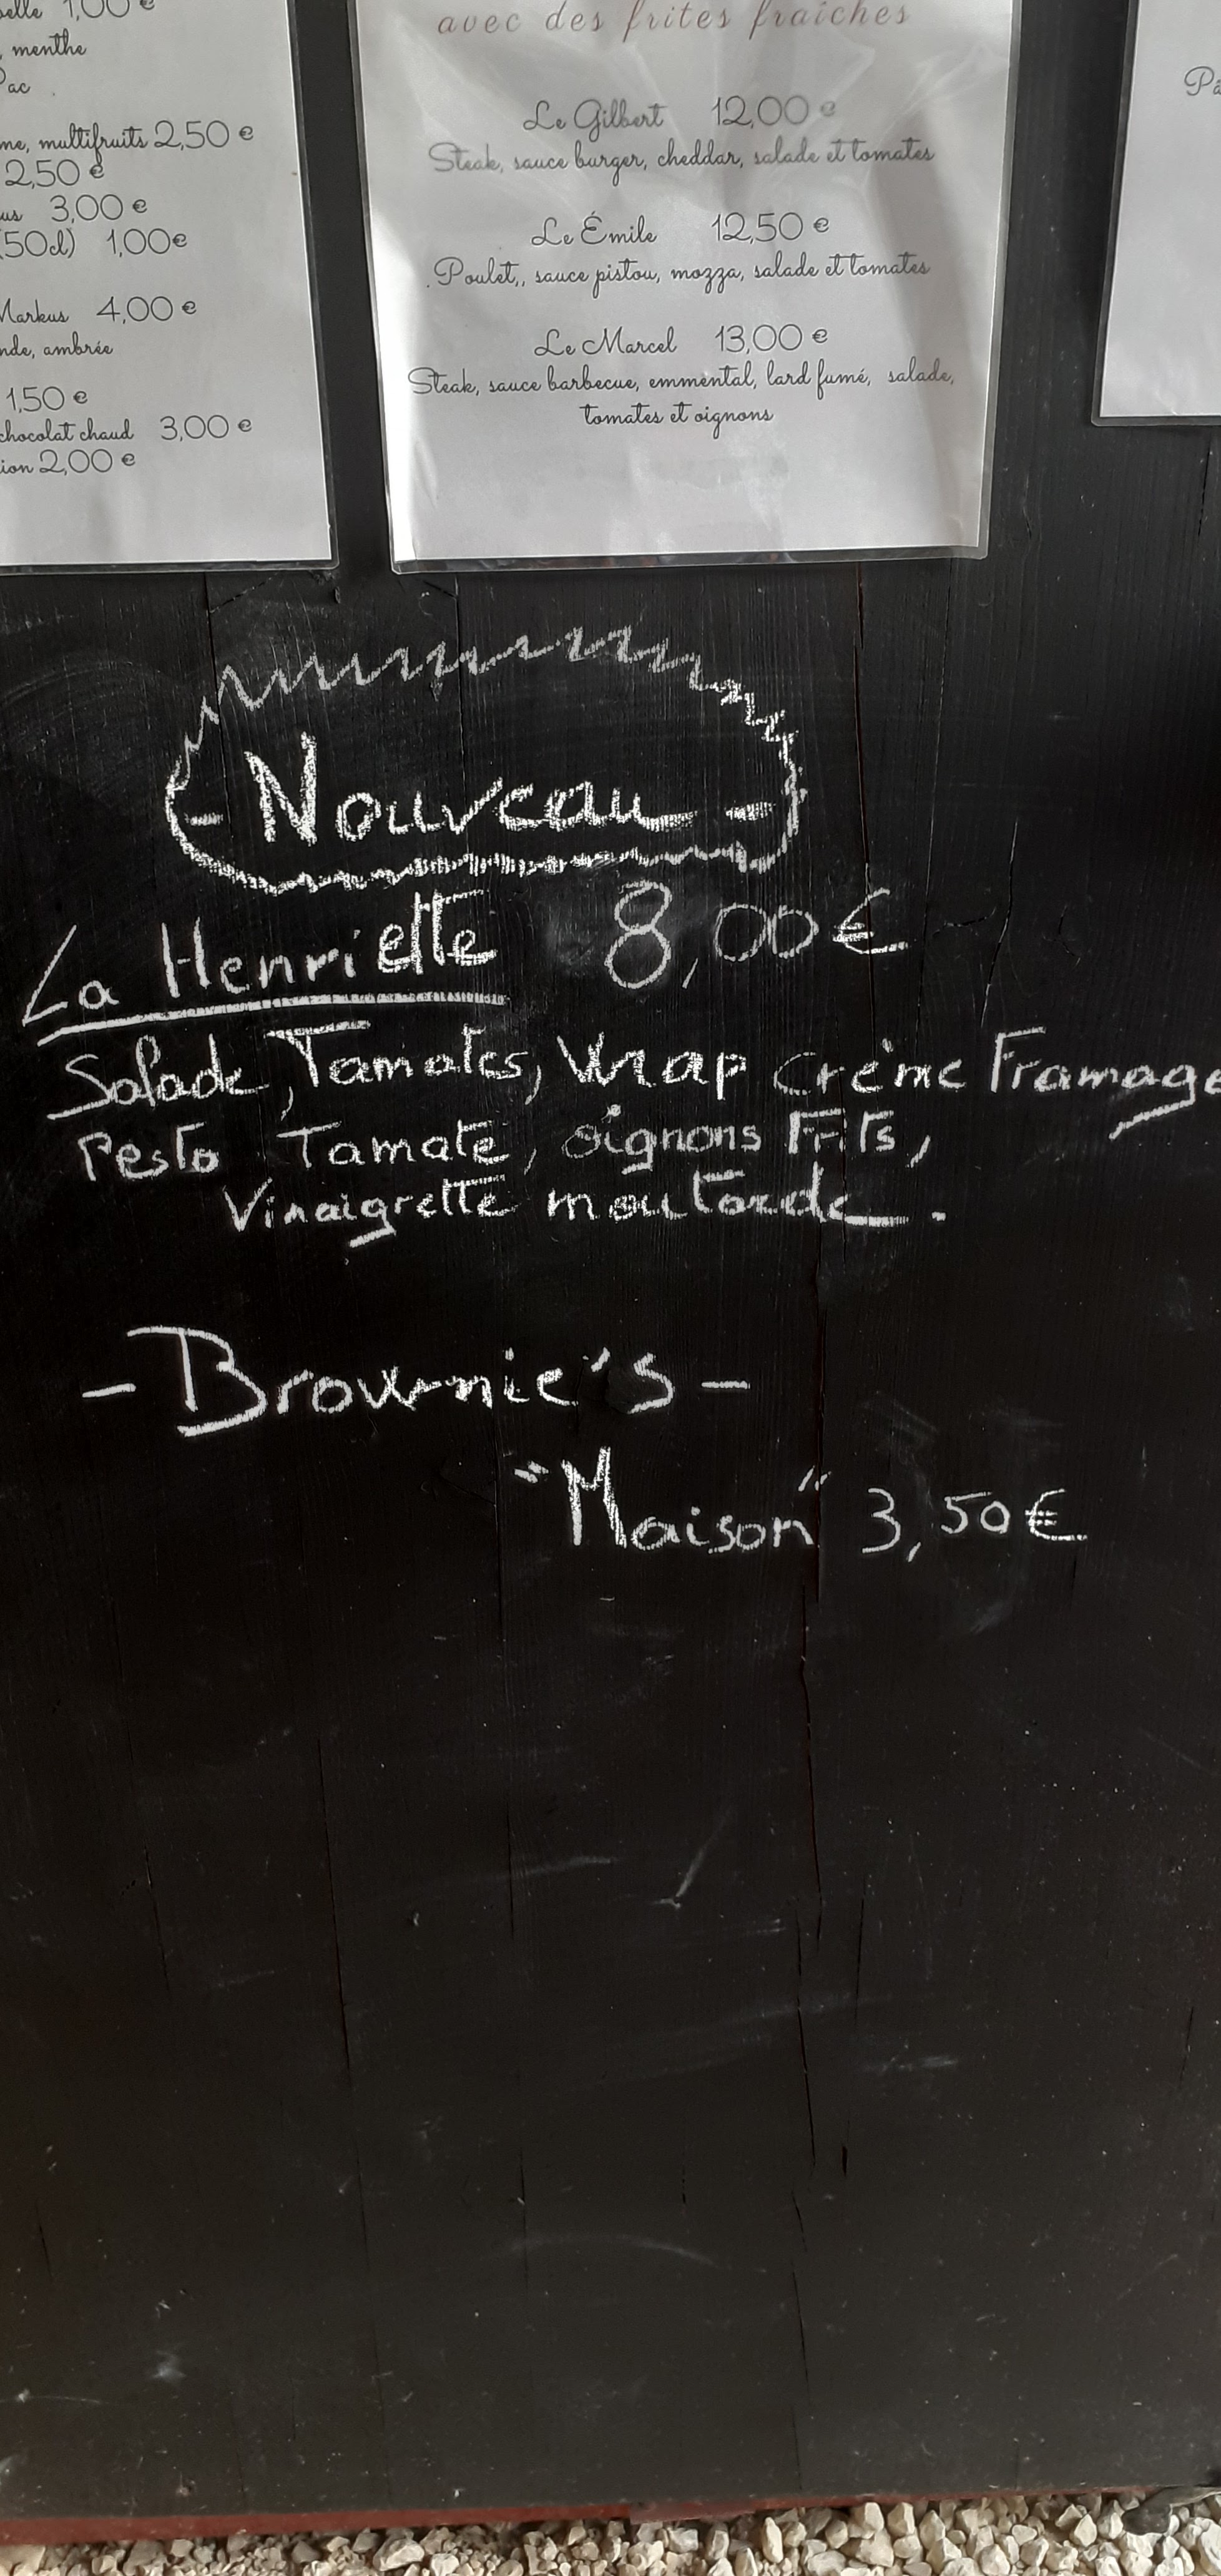 1,00 €
menthe
multifruits 2,50 €
2,50 €
3,00 €
(50cl) 1,00 €
Markus 4,00 €
ambrée
1,50 €
chocolat chaud 3,00 €
2,00 €
avec des frites fraîches
Le Gilbert 12,00 €
Steak, sauce burger, cheddar, salade et tomates
Le Émile 12,50 €
. Poulet,, sauce pistou, mozza, salade et tomates
Le Marcel 13,00 €
Steak, sauce barbecue, emmental, lard fumé, salade,
tomates et oignons
- Nouveau -
La Henriette 8,00€
Salade, Tomates, Wrap crème Fromage
Pesto Tomate, oignons Frits,
Vinaigrette moutarde.
- Brownie's -
"Maison" 3,50€